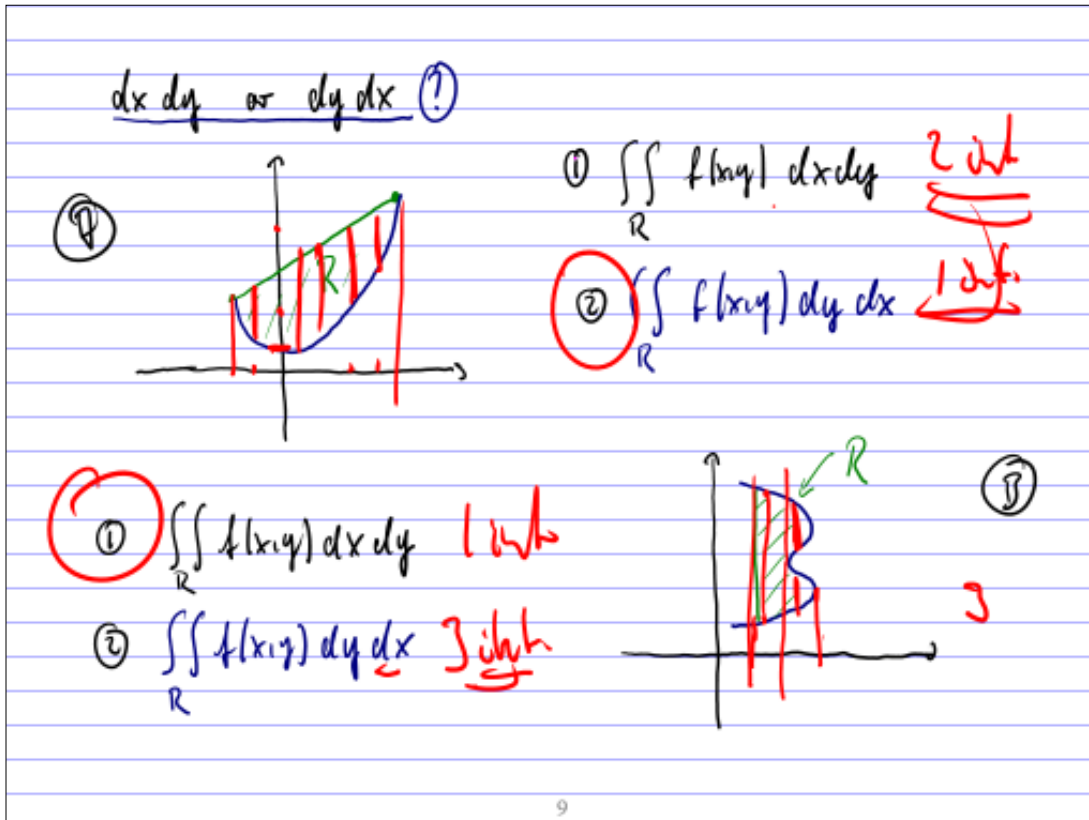 dx dy or dy dx ?
A
① ∬ f(x,y) dx dy 2 int
R
② ∬ f(x,y) dy dx 1 int.
R
R
① ∬ f(x,y) dx dy 1 int
R
② ∬ f(x,y) dy dx 3 int
R
R
B
3
9